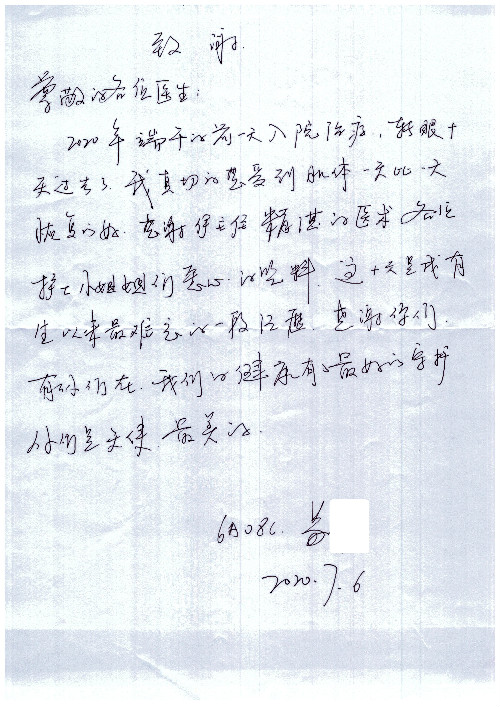 致 谢.
尊敬的各位医生:
2020年端午的前一天入院治疗,转眼十
天过去了.我真切的感受到肌体一天比一天
恢复的好.感谢伊主任精湛的医术 各位
护士小姐姐们悉心的照料.这十天是我有
生以来最难忘的一段经历.感谢你们.
有你们在.我们的健康有最好的守护
你们是天使.最美的.
6A08C.
2020.7.6